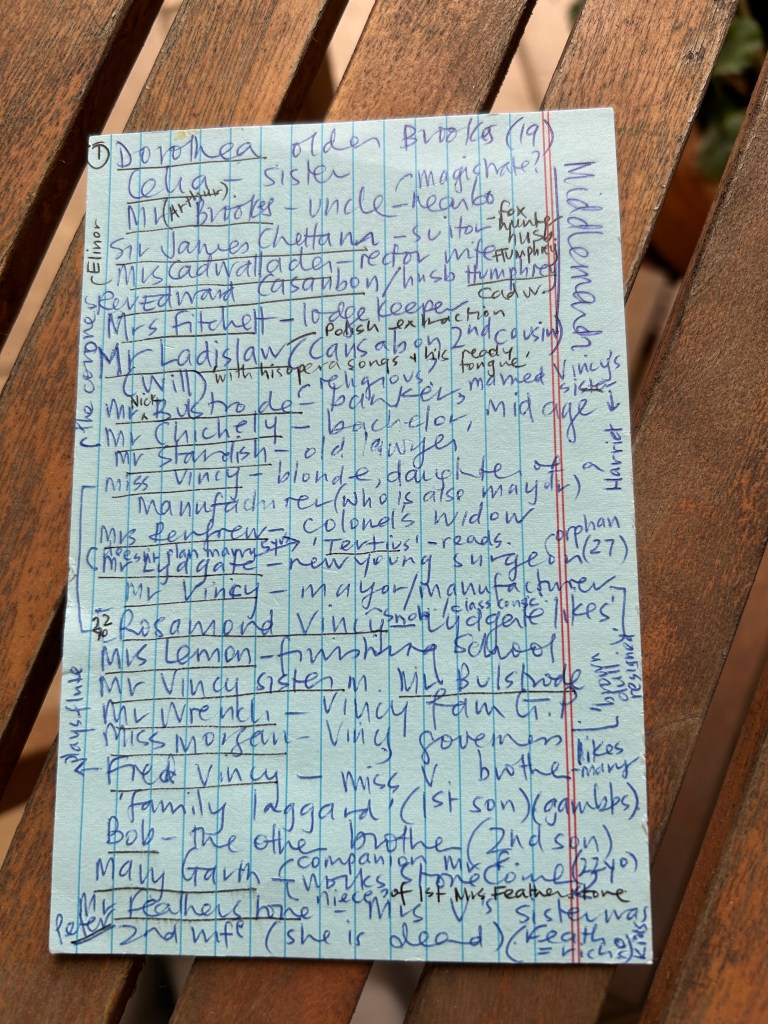 Middlemarch
① Dorothea older Brooke (19)
Celia - sister
magistrate?
Mr (Arthur) Brooke - uncle -
Sir James Chettam - suitor - fox hunter
(Elinor
Mrs Cadwallader - rector wife husb Humphrey
Rev Edward Casaubon / husb Humphrey Cadw.
Mrs Fitchett - lodge keeper
Polish extraction
Mr Ladislaw (Causabon 2nd cousin)
(Will) with his opera songs & his ready tongue,
religious,
Mr Nick Bustrode - banker, married Vincy's sister
Harriet
Mr Chichely - bachelor, mid age
Mr Standish - old lawyer
Miss Vincy - blonde, daughter of
Manufacturer (who is also mayor)
Mrs Renfrew - colonel's widow
(doesn't plan marry 5yr) 'Tertius' - reads.
orphan
Mr Lydgate - new young surgeon (27)
Mr Vincy - mayor/manufacturer
22 yo Rosamond Vincy snob/class consc Lydgate 'likes'
Mrs Lemon - finishing School
Mr Vincy sister m. Mr Bulstrode
Mr Wrench - Vincy fam G.P.
Miss Morgan - Vincy governess
brown, dull, resigned
plays flute
Fred Vincy - Miss V. brother - likes Mary
'family laggard' (1st son) (gambles)
Bob - the other brother (2nd son)
Mary Garth - (companion Mr F.
works Stone Come (22yo)
niece of 1st Mrs Featherstone
Mr Featherstone - Mrs V's sister was
Peter 2nd wife (she is dead)